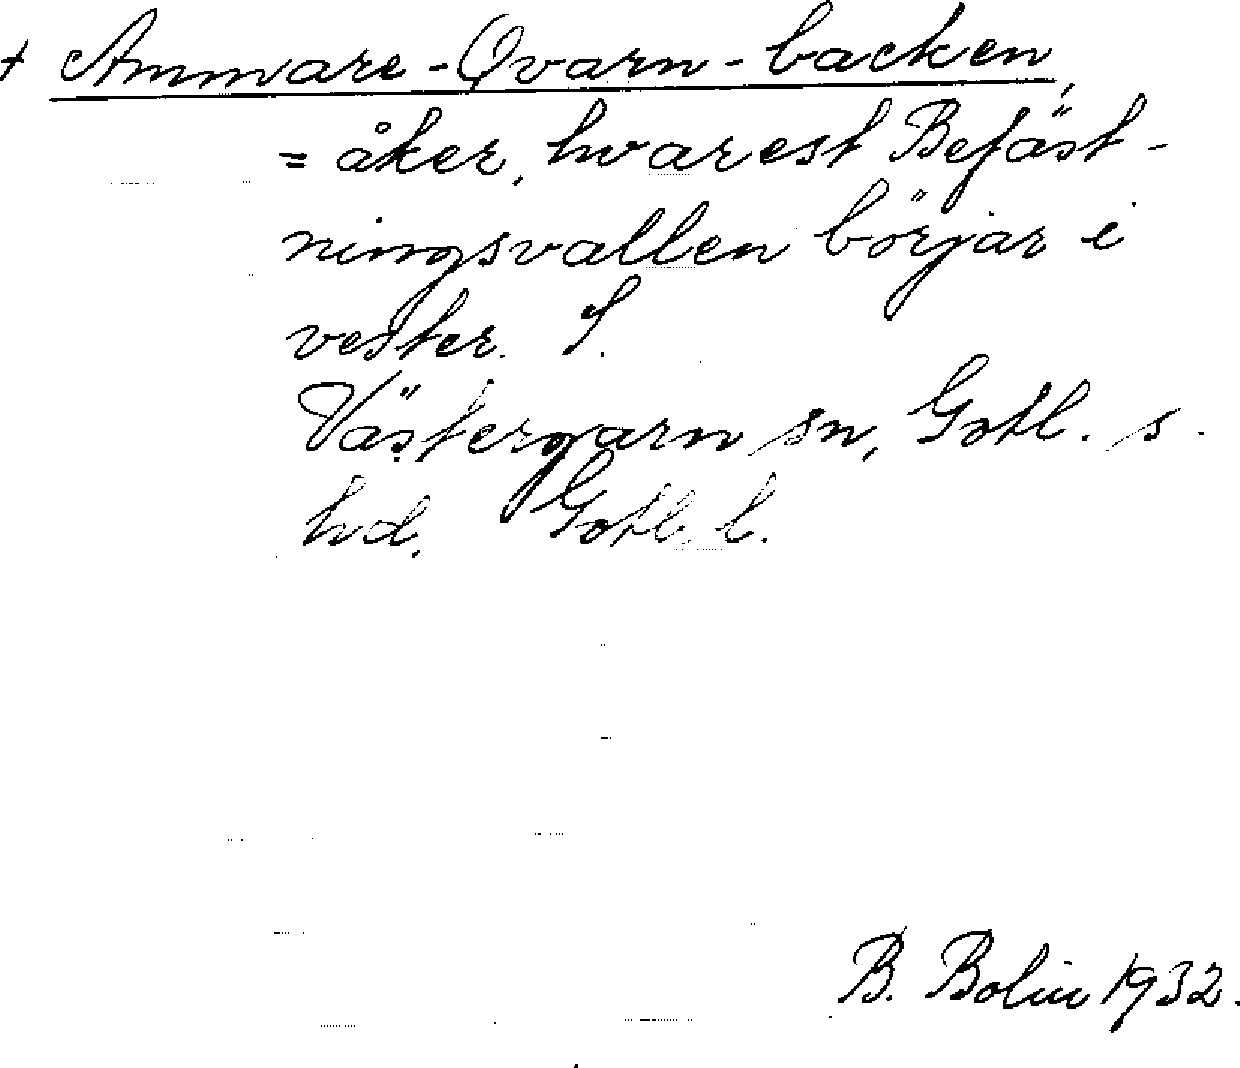 + Ammare-Qvarn-backen,
= åker, hvarest Befäst-
ningsvallen börjar i
vester. S.
Västergarn sn, Gotl. s.
hd, Gotl. l.
B. Bolin 1932.